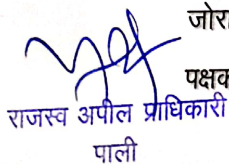 जोरा
पक्षक
राजस्व अपील प्राधिकारी
पाली